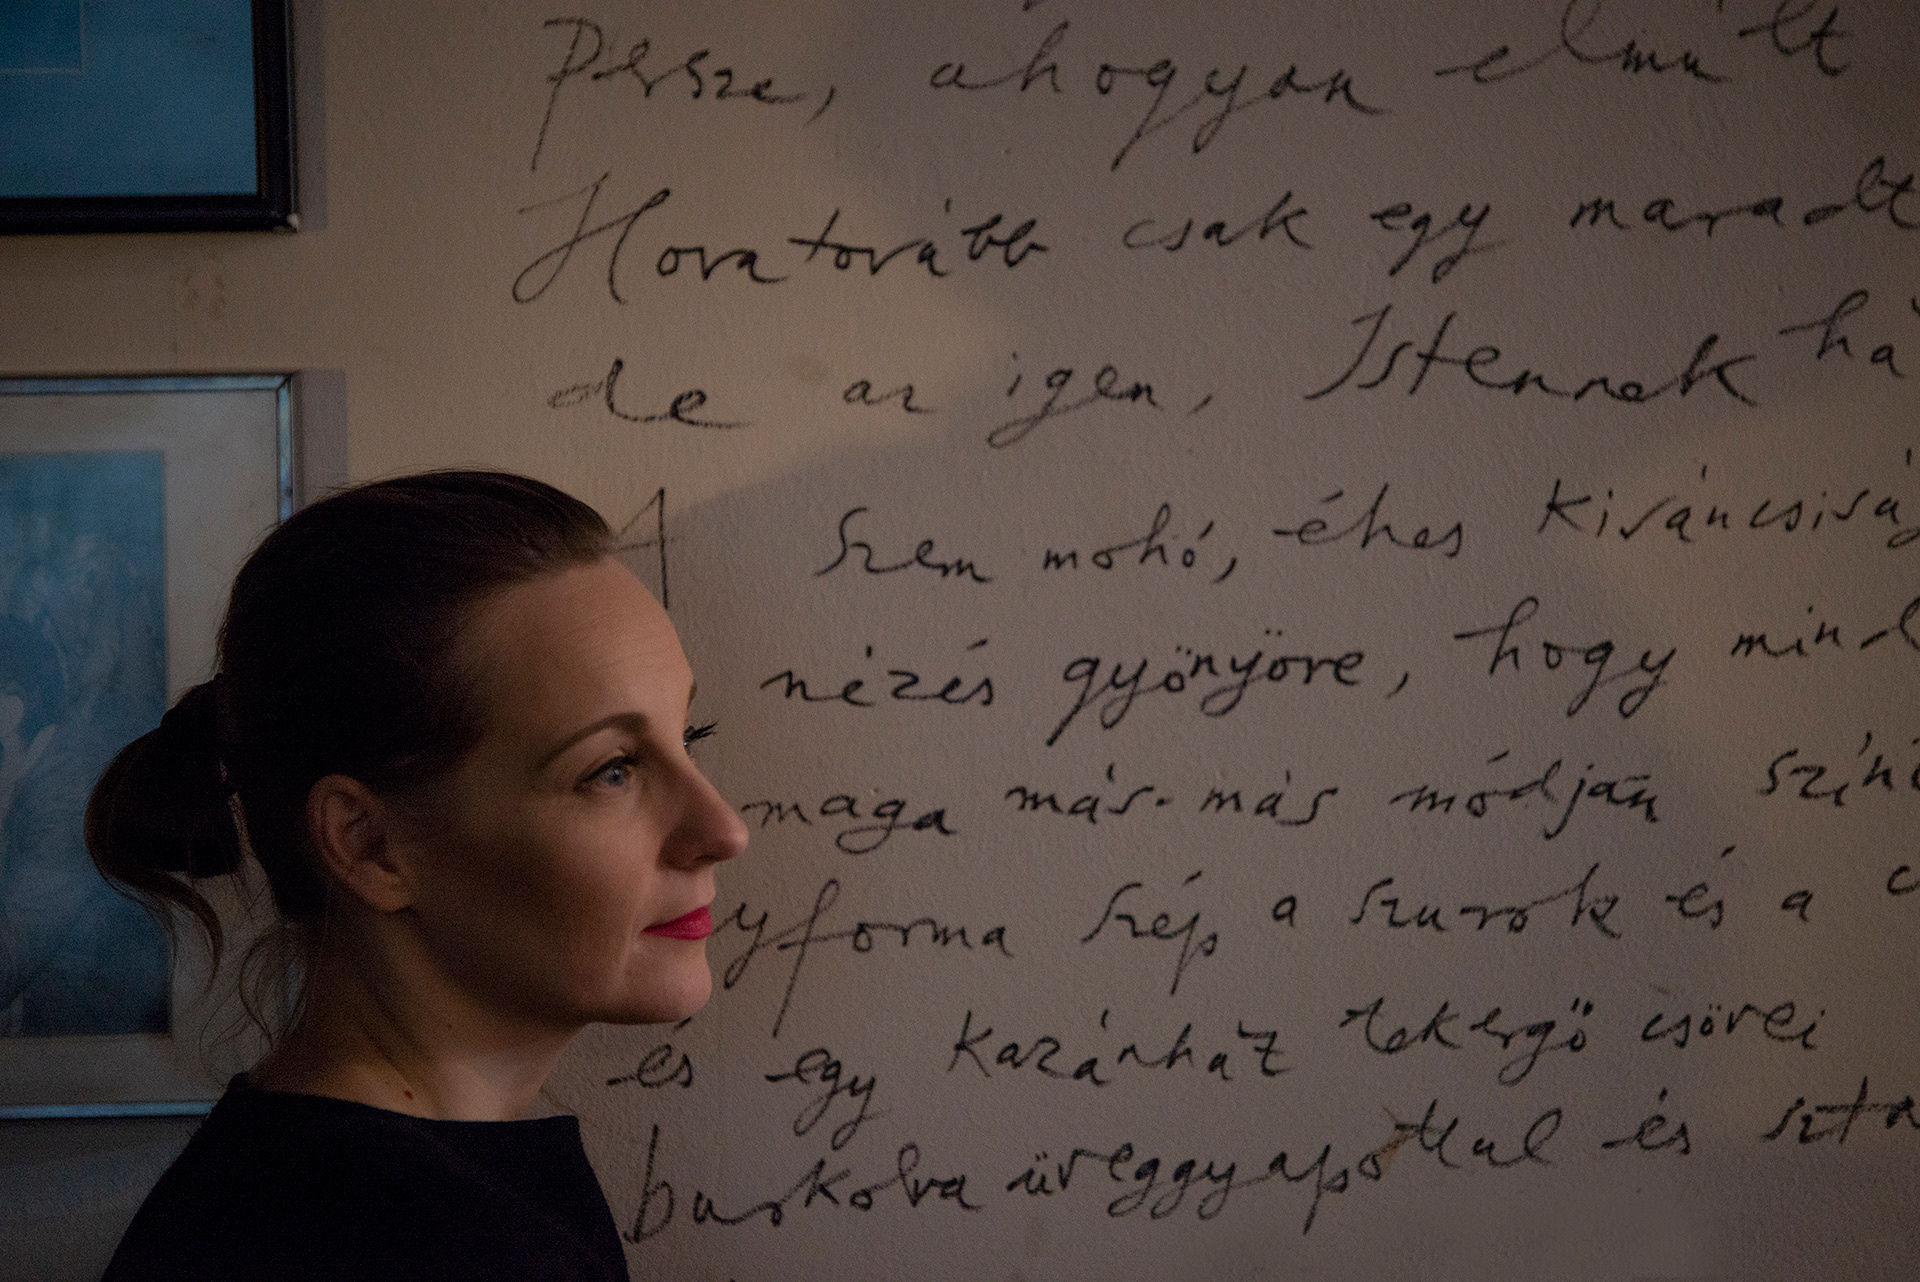 Persze, ahogyan elmúlt
Hovatovább csak egy maradt
de az igen, Istennek há
A szem mohó, éhes kiváncsiság
nézés gyönyöre, hogy mind
maga más-más módján színe
yforma szép a szurok és a
és egy kazánház tekergő csövei
burkolva üveggyapottal és szta